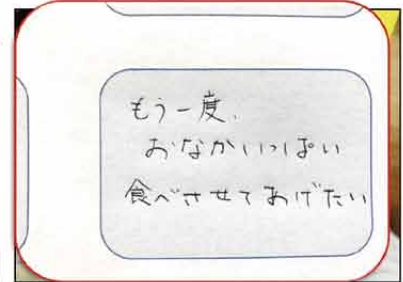 もう一度、
おなかいっぱい
食べさせてあげたい